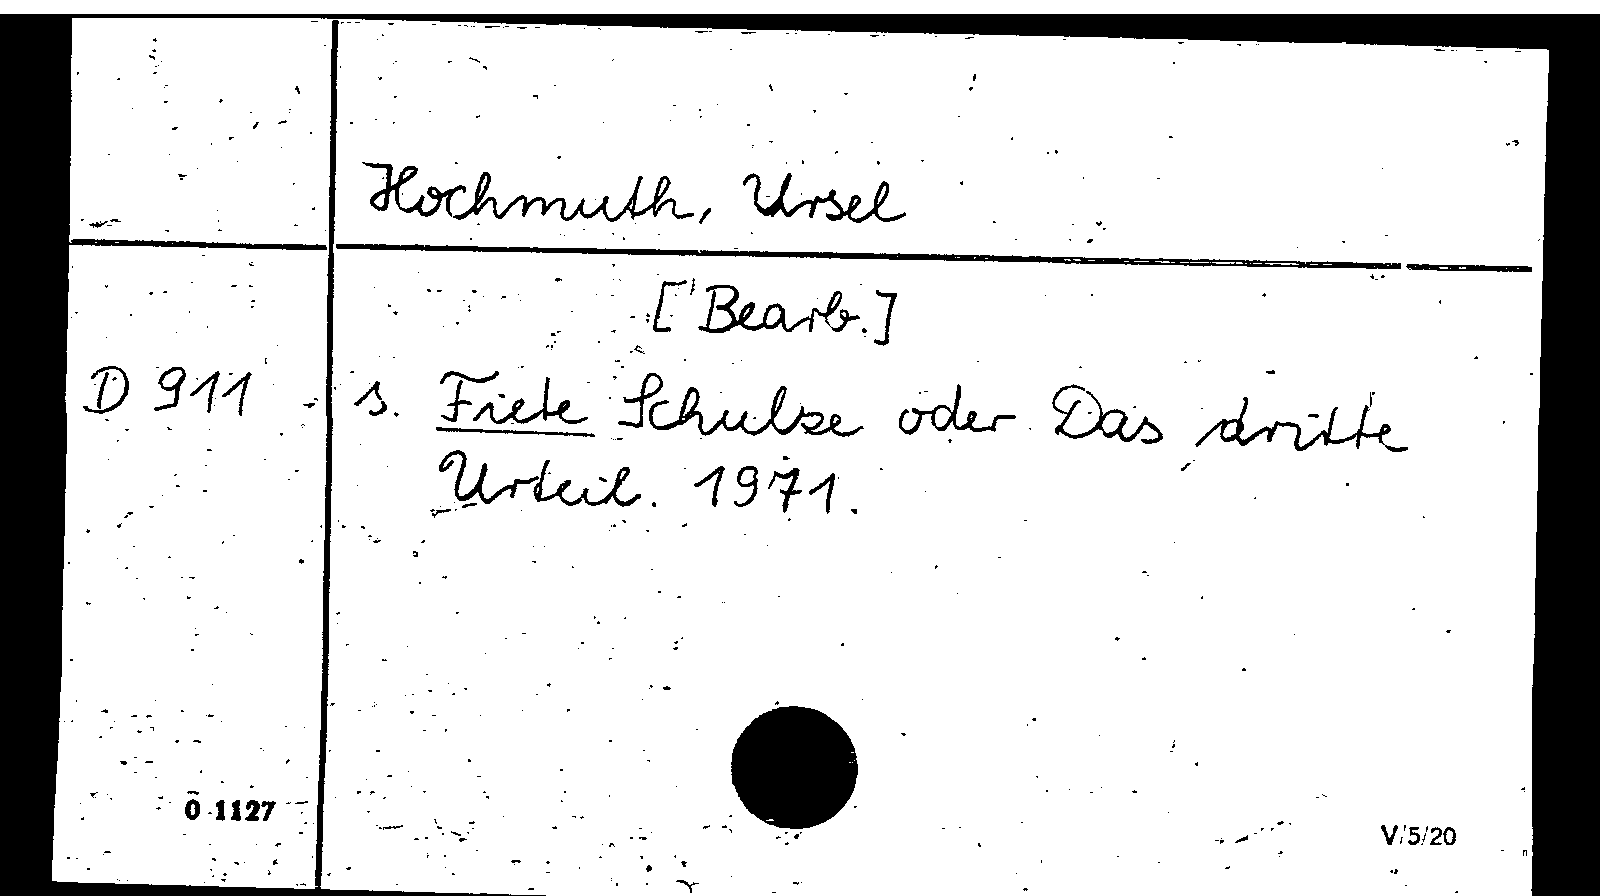 Hochmuth, Ursel
[Bearb.]
D 911 s. Fiete Schulze oder Das dritte
Urteil. 1971.
0 1127
V/5/20